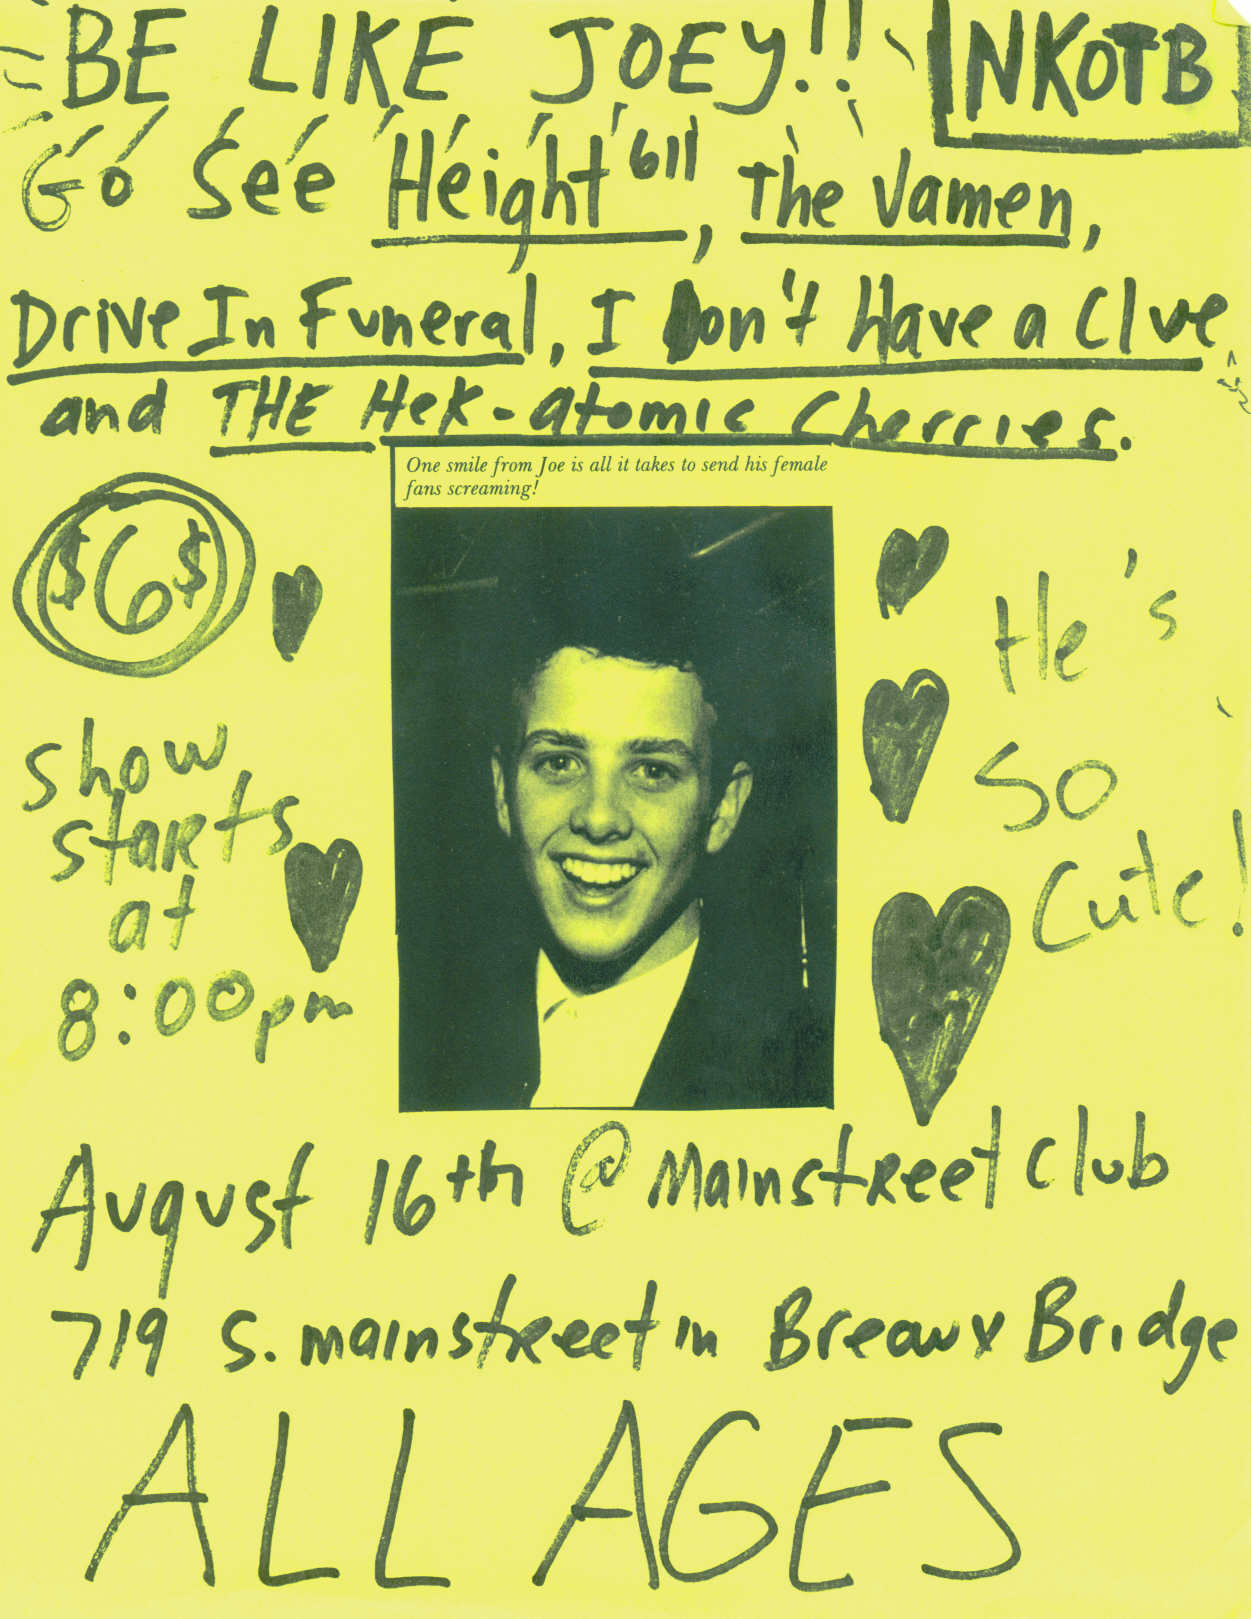 BE LIKE JOEY!! NKOTB
Go See Height 611, The Vamen,
Drive In Funeral, I Don't Have a Clue
and THE Hek-atomic Cherries.
One smile from Joe is all it takes to send his female
fans screaming!
$6$
Show
starts
at
8:00pm
He's
So
Cute!
August 16th @ Mainstreet Club
719 S. mainstreet in Breaux Bridge
ALL AGES